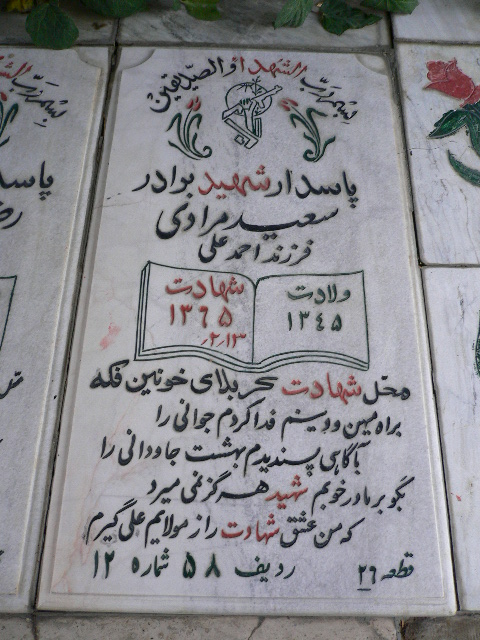 بسم رب الشهدا و الصدیقین
پاسدار شهید برادر
سعید مرادی
فرزند احمد علی
ولادت
۱۳۴۵
شهادت
۱۳۶۵
۲٫۱۳٫
محل شهادت کربلای خونین فکه
براه میهن و دینم فدا کردم جوانی را
با آگاهی پسندیدم بهشت جاودانی را
بگو بر مادر خوبم شهید هرگز نمی میرد
که من عشق شهادت را ز مولایم علی گیرم
قطعه ۲۹ ردیف ۵۸ شماره ۱۲